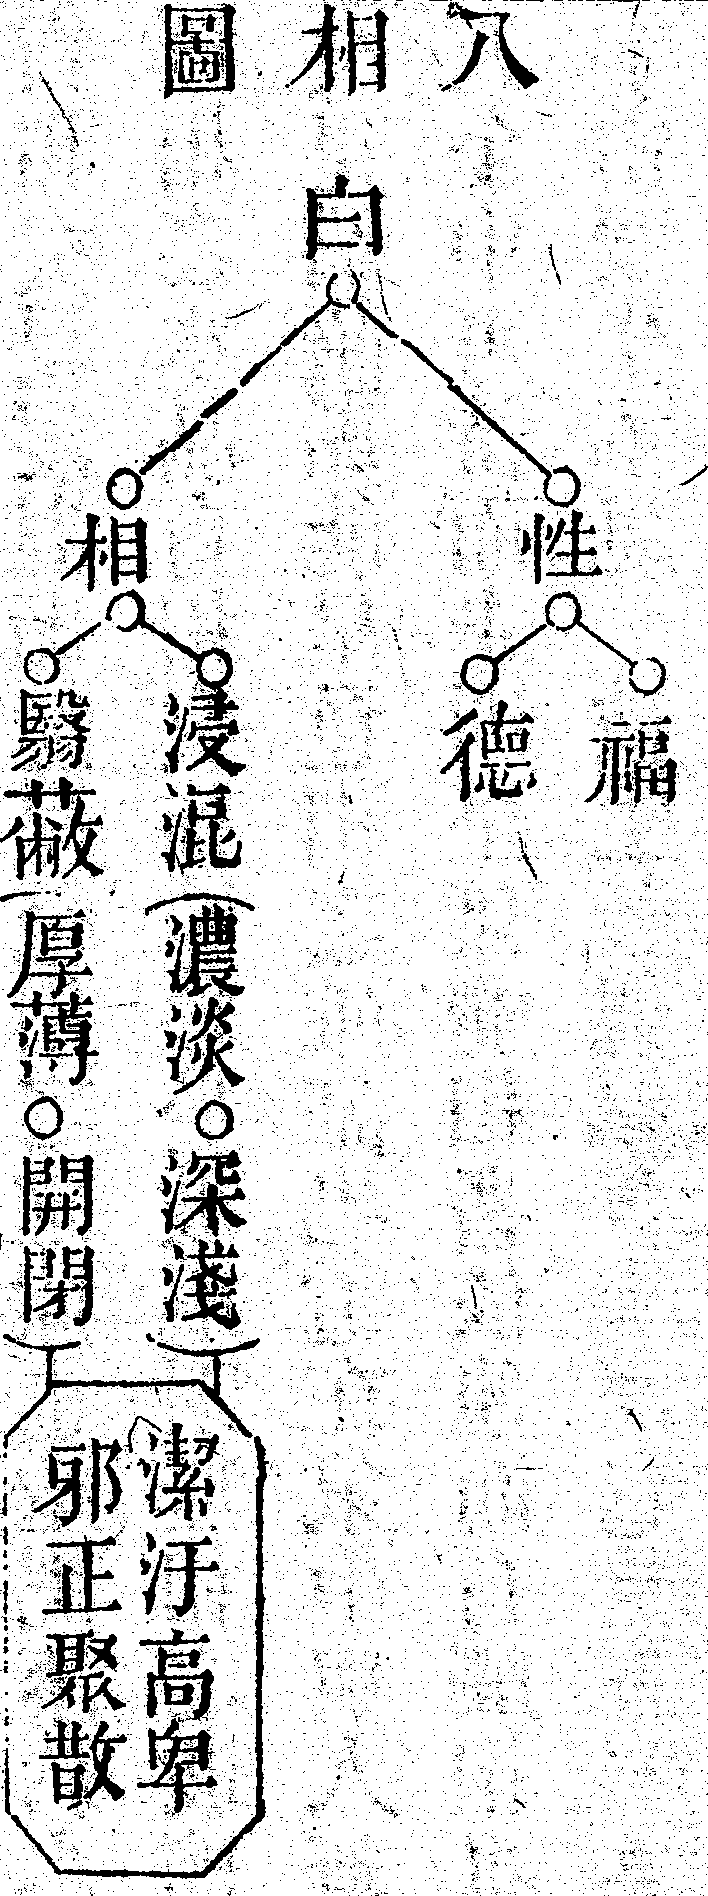 八相圖
白
性
福
德
相
浸混(濃淡○深淺)
翳蔽(厚薄○開閉)
潔汙高卑
邪正聚散